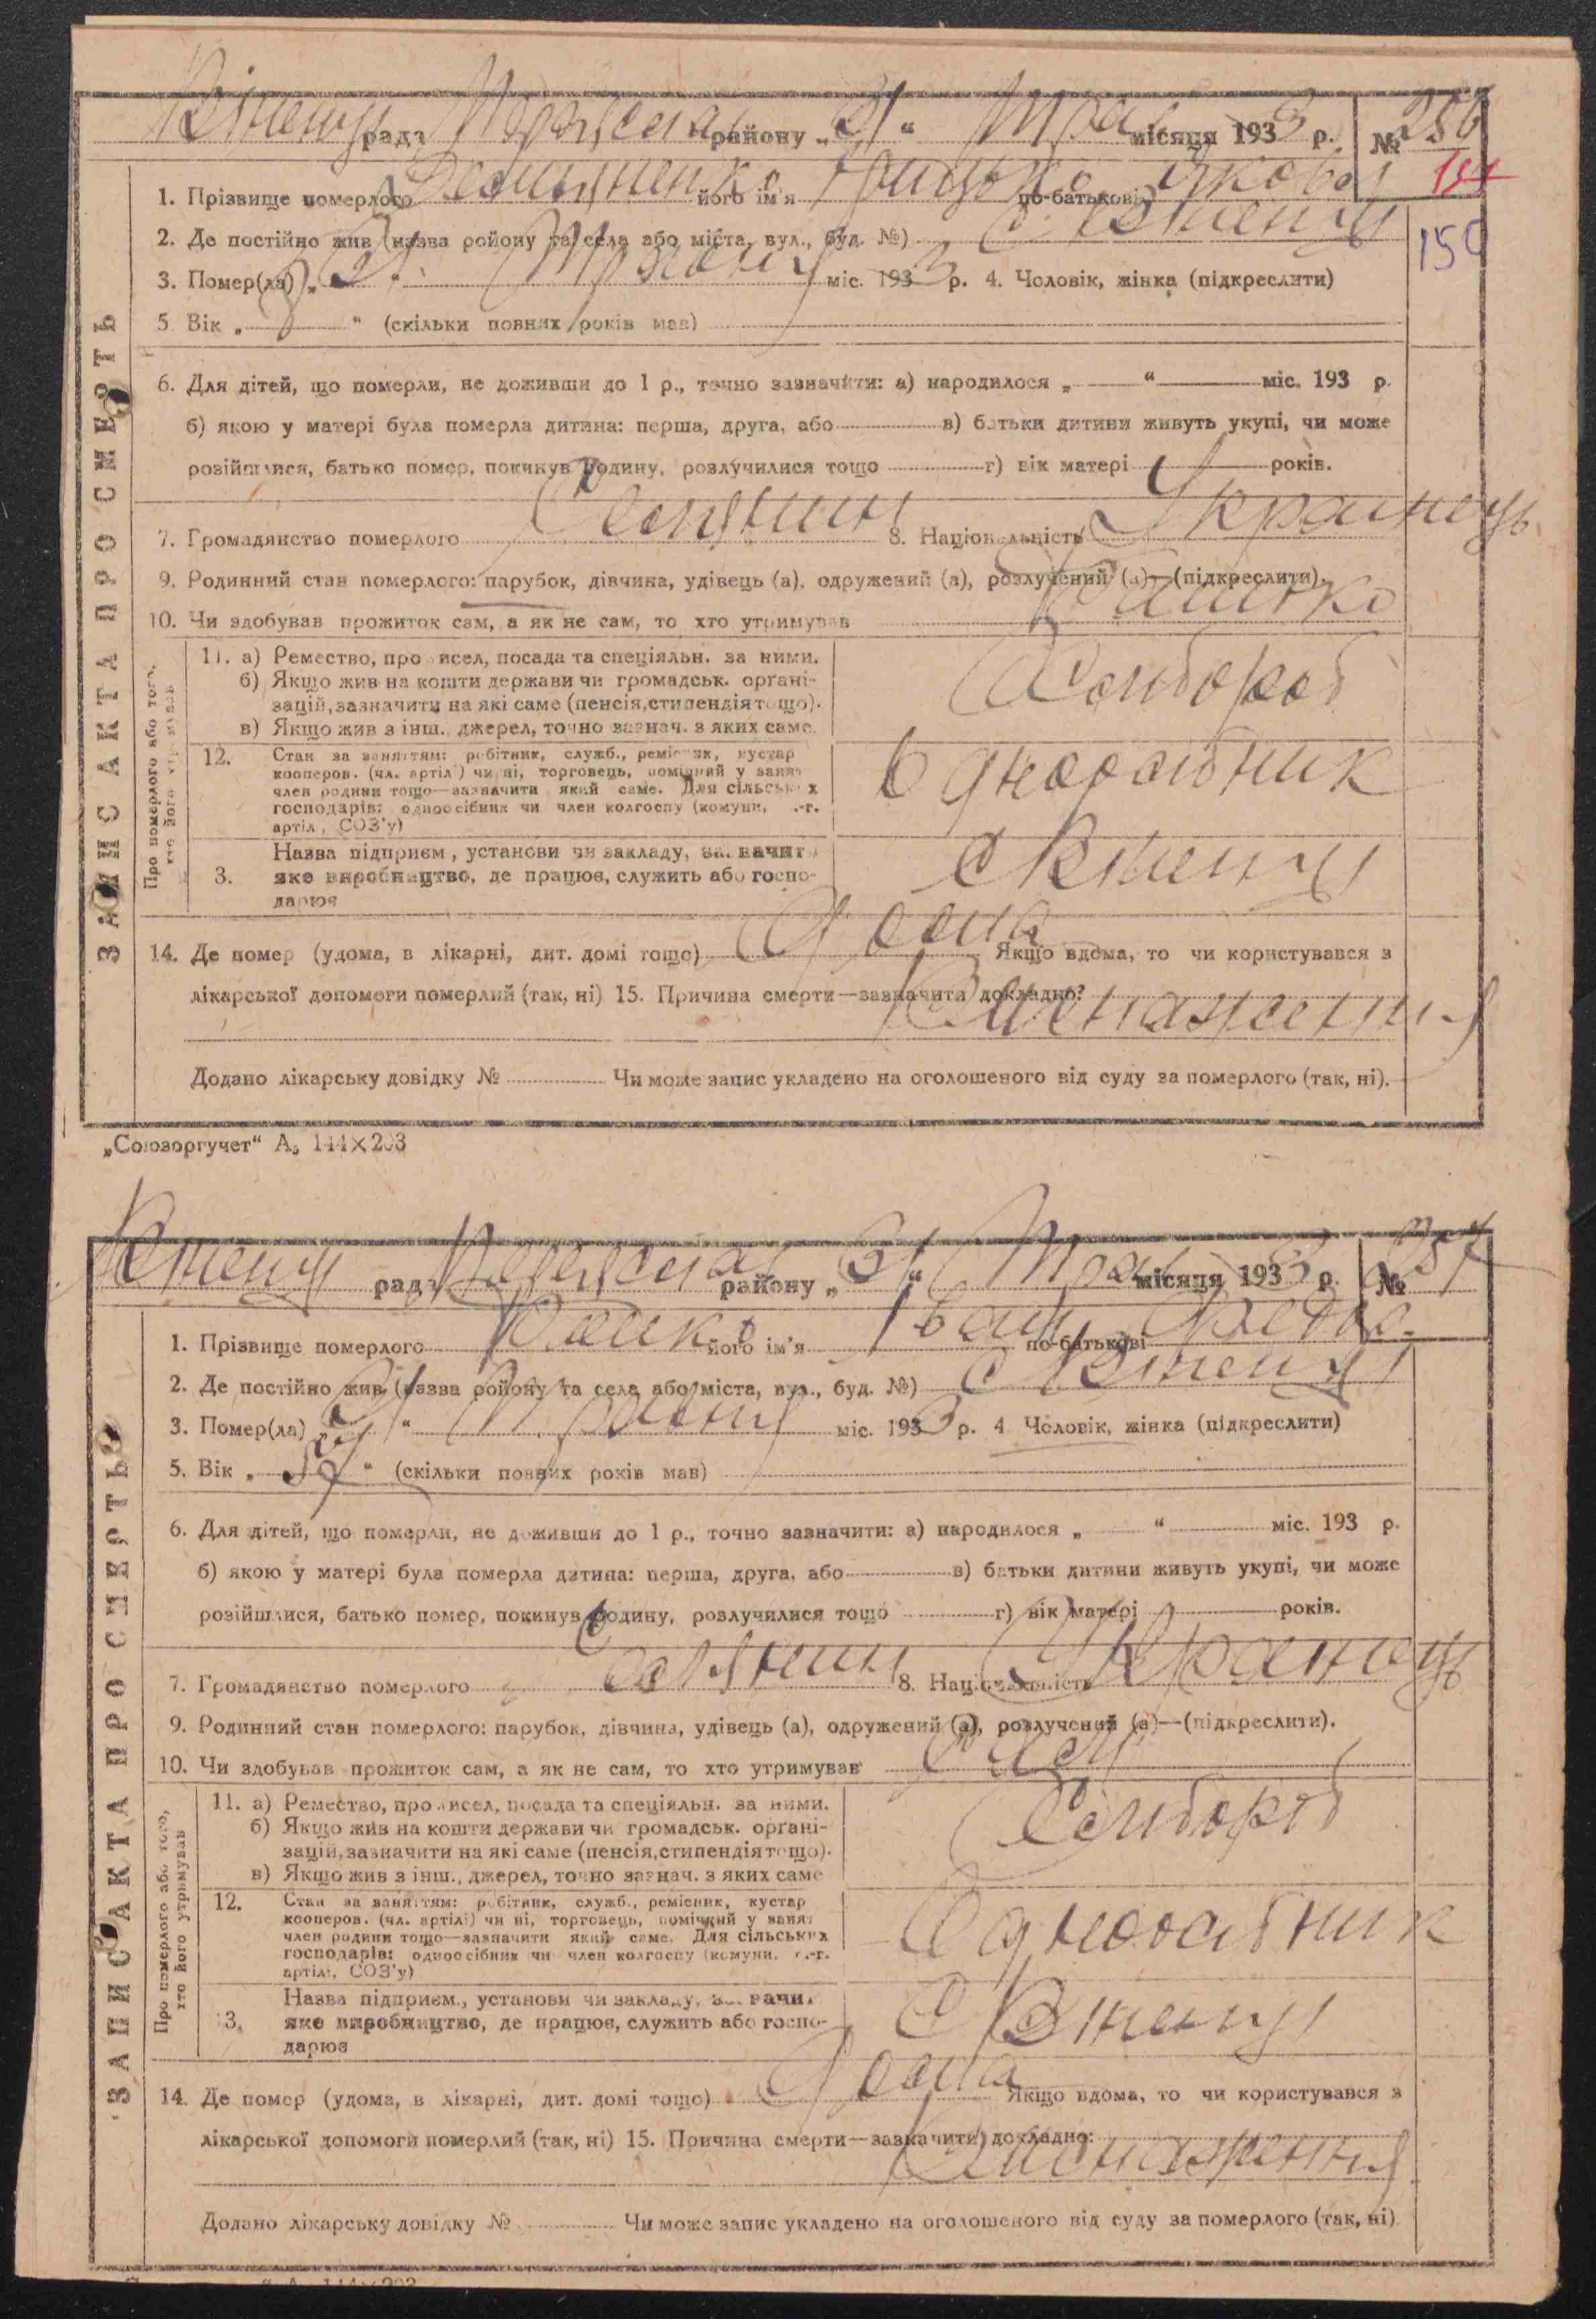 рада району „31“ Трав місяця 1933 р. № 256
1. Прізвище померлого Демяненко його ім'я Грицько по-батькові Яков.
2. Де постійно жив (назва ройону та села або міста, вул., буд. №) с
150
3. Помер(ла) „31“ Травня міс. 1933 р. 4. Чоловік, жінка (підкреслити)
5. Вік „8“ (скільки повних років мав)
6. Для дітей, що померли, не доживши до 1 р., точно зазначити: а) народилося „ “ міс. 193 р.
б) якою у матері була померла дитина: перша, друга, або в) батьки дитини живуть укупі, чи може
розійшлися, батько помер, покинув родину, розлучилися тощо г) вік матері років.
7. Громадянство померлого Селянин 8. Національність Українець
9. Родинний стан померлого: парубок, дівчина, удівець (а), одружений (а), розлучений (а)—(підкреслити).
10. Чи здобував прожиток сам, а як не сам, то хто утримував Батько
ЗАПИС АКТА ПРО СМЕРТЬ
Про померлого або того, хто його утримував
11. а) Ремество, промисел, посада та спеціяльн. за ними.
б) Якщо жив на кошти держави чи громадськ. органі-
зацій, зазначити на які саме (пенсія, стипендія тощо).
в) Якщо жив з інш., джерел, точно зазнач. з яких саме.
Хлібороб
12. Стан за заняттям: робітник, служб., ремісник, кустар
кооперов. (чл. артілі) чи ні, торговець, помічний у занят
член родини тощо—зазначити який саме. Для сільських
господарів: одноосібник чи член колгоспу (комуни, с.-г.
артілі, СОЗ'у)
Одноосібник
3. Назва підприєм., установи чи закладу, зазначити
яке виробництво, де працює, служить або госпо-
дарює
с
14. Де помер (удома, в лікарні, дит. домі тощо) Дома Якщо вдома, то чи користувався з
лікарської допомоги померлий (так, ні) 15. Причина смерти—зазначити докладно?
Виснаження
Додано лікарську довідку № Чи може запис укладено на оголошеного від суду за померлого (так, ні).
„Союзоргучет“ А₅ 144×203
рада району „31“ Трав місяця 1933 р. № 257
1. Прізвище померлого його ім'я Іван по-батькові Федор.
2. Де постійно жив (назва ройону та села або міста, вул., буд. №) с
3. Помер(ла) „31“ Травня міс. 1933 р. 4 Чоловік, жінка (підкреслити)
5. Вік „ “ (скільки повних років мав)
6. Для дітей, що померли, не доживши до 1 р., точно зазначити: а) народилося „ “ міс. 193 р.
б) якою у матері була померла дитина: перша, друга, або в) батьки дитини живуть укупі, чи може
розійшлися, батько помер, покинув родину, розлучилися тощо г) вік матері років.
7. Громадянство померлого Селянин 8. Національність Українець
9. Родинний стан померлого: парубок, дівчина, удівець (а), одружений (а), розлучений (а)—(підкреслити).
10. Чи здобував прожиток сам, а як не сам, то хто утримував Сам
ЗАПИС АКТА ПРО СМЕРТЬ
Про померлого або того, хто його утримував
11. а) Ремество, промисел, посада та спеціяльн. за ними.
б) Якщо жив на кошти держави чи громадськ. органі-
зацій, зазначити на які саме (пенсія, стипендія тощо).
в) Якщо жив з інш., джерел, точно зазнач. з яких саме
Хлібороб
12. Стан за заняттям: робітник, служб., ремісник, кустар
кооперов. (чл. артілі) чи ні, торговець, помічний у занят
член родини тощо—зазначити який саме. Для сільських
господарів: одноосібник чи член колгоспу (комуни, с.-г.
артілі, СОЗ'у)
Одноосібник
3. Назва підприєм., установи чи закладу, зазначи
яке виробництво, де працює, служить або госпо-
дарює
с
14. Де помер (удома, в лікарні, дит. домі тощо) Дома Якщо вдома, то чи користувався з
лікарської допомоги померлий (так, ні) 15. Причина смерти—зазначити докладно:
Виснаження
Додано лікарську довідку № Чи може запис укладено на оголошеного від суду за померлого (так, ні)